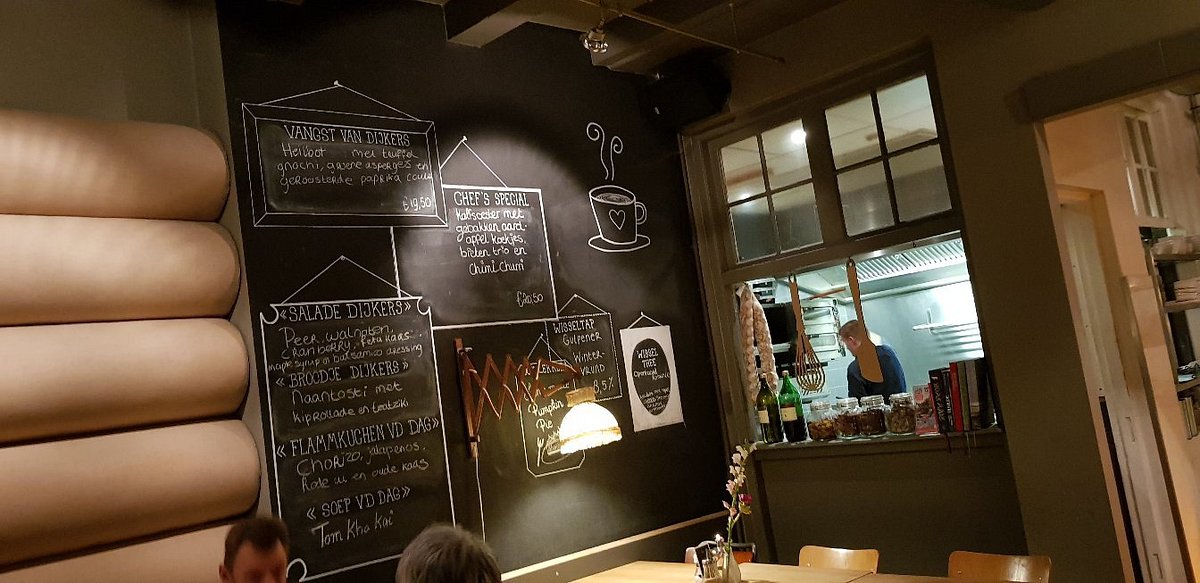 VANGST VAN DIJKERS
Heilbot met truffel
gnochi, groene asperges en
geroosterde paprika coulis
€19,50
CHEF'S SPECIAL
Kalfsoester met
gebakken aard-
appel koekjes,
bieten trio en
Chimi Churri
€20,50
«SALADE DIJKERS»
Peer, walnoten,
cranberry, feta kaas
maple syrup balsamico dressing
«BROODJE DIJKERS»
Naantosti met
kiprollade en tzatziki
«FLAMMKUCHEN VD DAG»
Chorizo, jalapenos,
Rode ui en oude kaas
«SOEP VD DAG»
Tom Kha Kai
WISSELTAP
Gulpener
Winter-
vrund
8,5%
Pumpkin
Pie
WISSEL
THEE